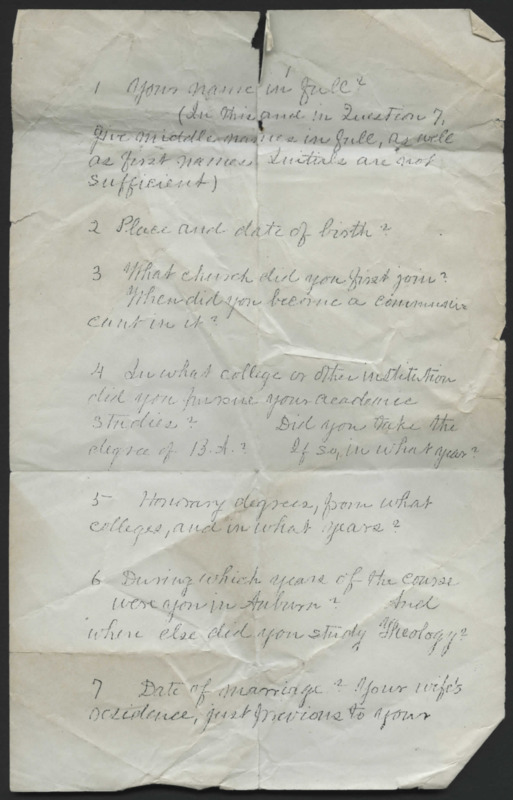 1 Your name in full?
(In this and in Question 7,
give middle names in full, as well
as first names. Initials are not
sufficient)
2 Place and date of birth?
3 What church did you first join?
When did you become a communi-
cant in it?
4 In what college or other institution
did you pursue your academic
studies? Did you take the
degree of B.A.? If so, in what year?
5 Honorary degrees, from what
colleges, and in what years?
6 During which years of the course
were you in Auburn? And
when else did you study Theology?
7 Date of marriage? Your wife's
residence, just previous to your